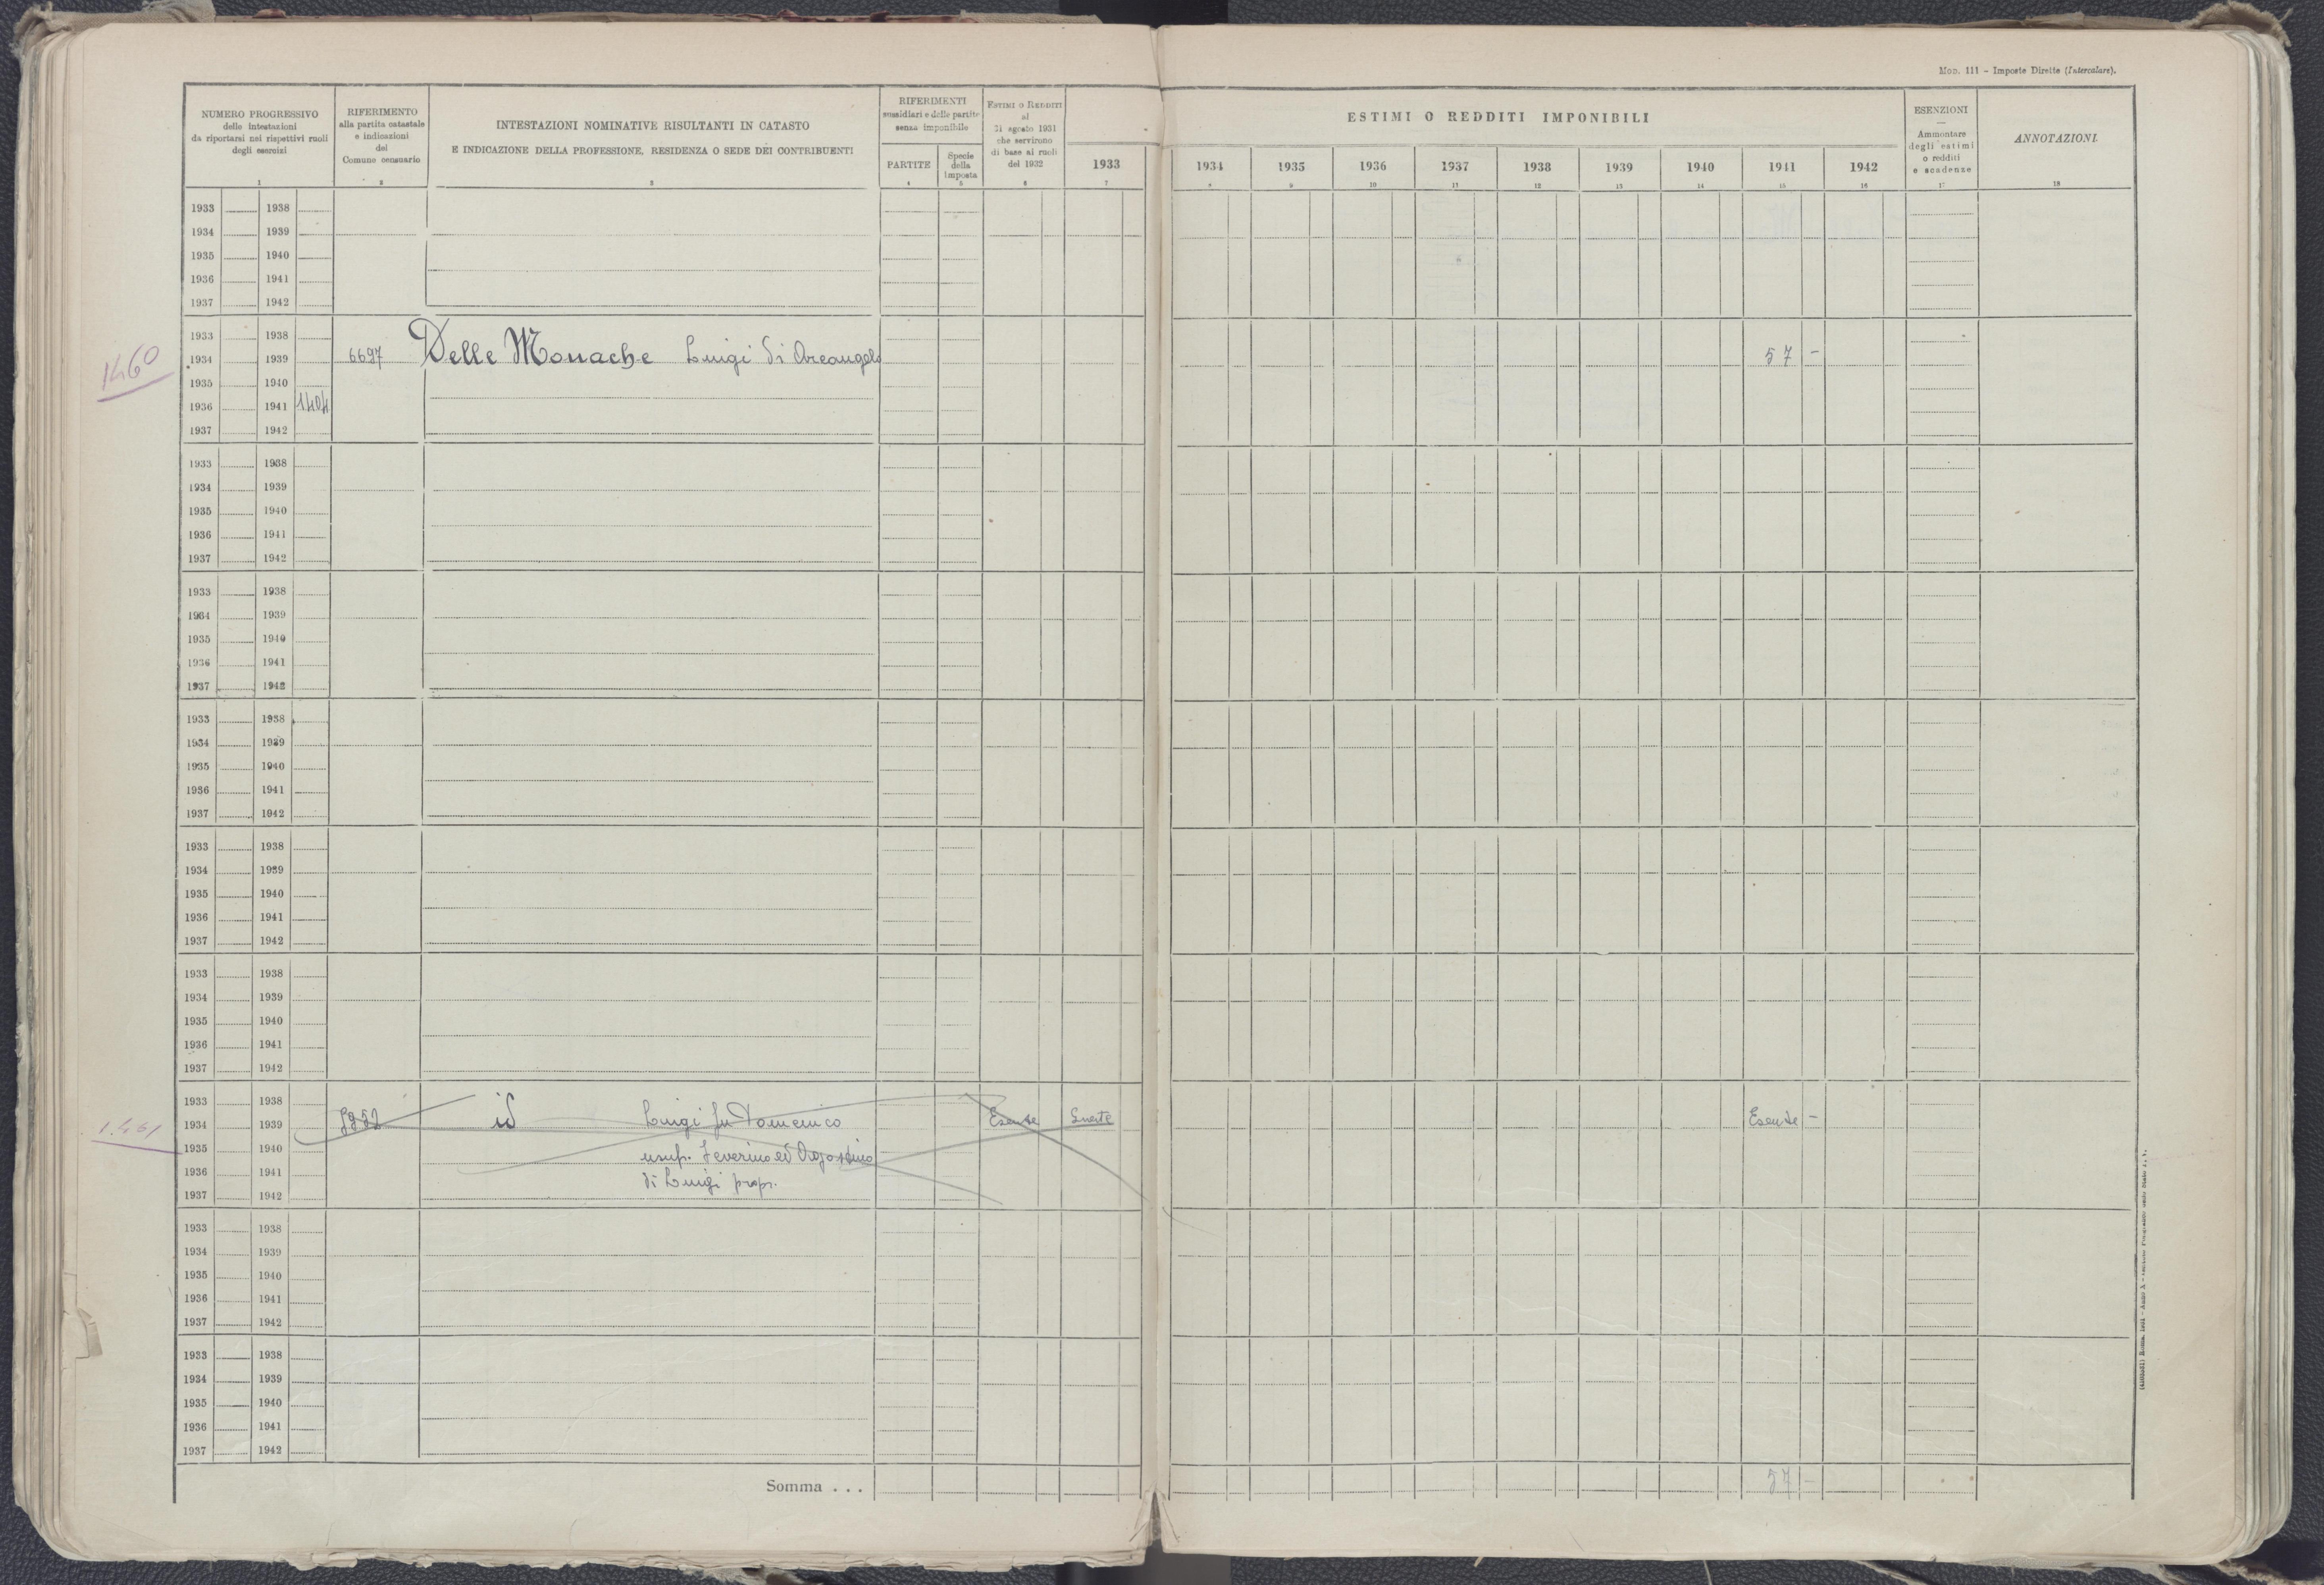 Mod. 111 - Imposte Dirette (Intercalare).
NUMERO PROGRESSIVO
delle intestazioni
da riportarsi nei rispettivi ruoli
degli esercizi
1
RIFERIMENTO
alla partita catastale
e indicazioni
del
Comune censuario
2
INTESTAZIONI NOMINATIVE RISULTANTI IN CATASTO
E INDICAZIONE DELLA PROFESSIONE, RESIDENZA O SEDE DEI CONTRIBUENTI
3
RIFERIMENTI
sussidiari e delle partite
senza imponibile
PARTITE
4
Specie
della
Imposta
5
Estimi o Redditi
al
31 agosto 1931
che servirono
di base ai ruoli
del 1932
6
1933
7
ESTIMI O REDDITI IMPONIBILI
1934 1935 1936 1937 1938 1939 1940 1941 1942
8 9 10 11 12 13 14 15 16
ESENZIONI
—
Ammontare
degli estimi
o redditi
e scadenze
17
ANNOTAZIONI.
18
1933 1938
1934 1939
1935 1940
1936 1941
1937 1942
1933 1938
1460
1934 1939 6697 Delle Monache Luigi di Arcangelo 57 -
1935 1940
1936 1941 1404
1937 1942
1933 1938
1934 1939
1935 1940
1936 1941
1937 1942
1933 1938
1934 1939
1935 1940
1936 1941
1937 1942
1933 1938
1934 1939
1935 1940
1936 1941
1937 1942
1933 1938
1934 1939
1935 1940
1936 1941
1937 1942
1933 1938
1934 1939
1935 1940
1936 1941
1937 1942
1933 1938
1.461
1934 1939 id Luigi fu Domenico Esente Esente -
1935 1940 usuf. Severino ed Agostino
1936 1941 di Luigi propr.
1937 1942
1933 1938
1934 1939
1935 1940
1936 1941
1937 1942
1933 1938
1934 1939
1935 1940
1936 1941
1937 1942
Somma . . . 57 -